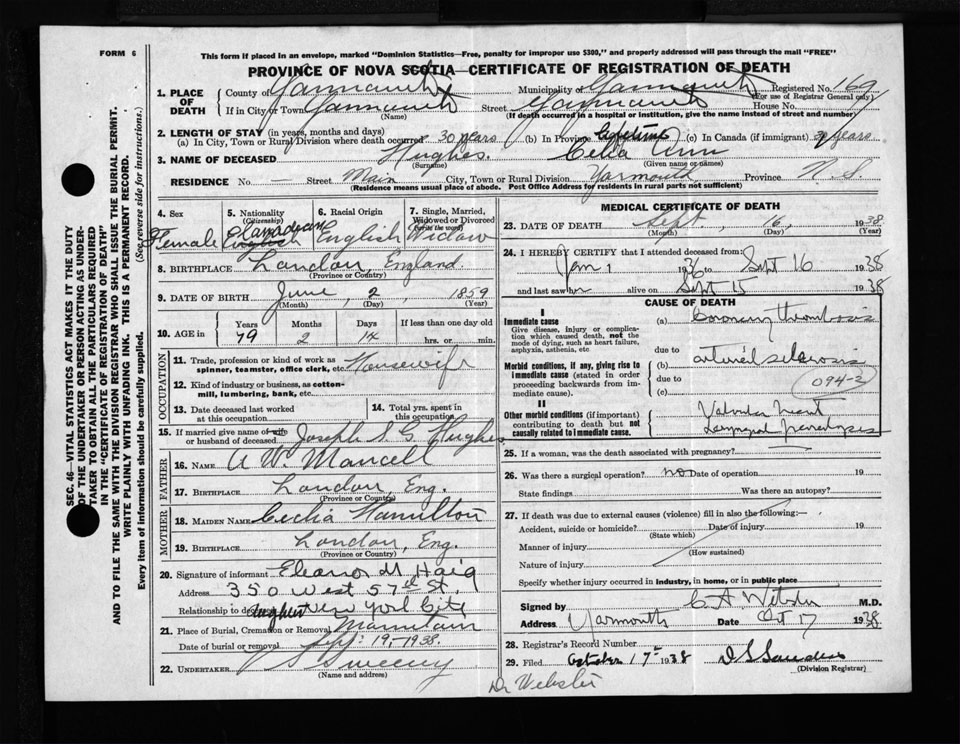 FORM 6
This form if placed in an envelope, marked "Dominion Statistics—Free, penalty for improper use $300," and properly addressed will pass through the mail "FREE"
PROVINCE OF NOVA SCOTIA—CERTIFICATE OF REGISTRATION OF DEATH
1. PLACE OF DEATH
County of Yarmouth Municipality of Yarmouth Registered No. 169
(For use of Registrar General only)
If in City or Town Yarmouth Street Yarmouth House No.
(Name) (If death occurred in a hospital or institution, give the name instead of street and number)
2. LENGTH OF STAY (in years, months and days)
(a) In City, Town or Rural Division where death occurred 30 years (b) In Province (c) In Canada (if immigrant) years
3. NAME OF DECEASED Hughes. Cella Ann
(Surname) (Given name or names)
RESIDENCE No. — Street Main City, Town or Rural Division Yarmouth Province N. S.
(Residence means usual place of abode. Post Office Address for residents in rural parts not sufficient)
4. Sex
Female
5. Nationality (Citizenship)
Canadian English
6. Racial Origin
English
7. Single, Married, Widowed or Divorced (write the word)
Widow
8. BIRTHPLACE London, England
(Province or Country)
9. DATE OF BIRTH June, 2, 1859
(Month) (Day) (Year)
10. AGE in Years Months Days If less than one day old
79 2 14 hrs. or min.
OCCUPATION
11. Trade, profession or kind of work as spinner, teamster, office clerk, etc. Housewife
12. Kind of industry or business, as cotton-mill, lumbering, bank, etc.
13. Date deceased last worked at this occupation
14. Total yrs. spent in this occupation
15. If married give name of wife or husband of deceased Joseph S. G. Hughes
FATHER
16. NAME A W. Mancell
17. BIRTHPLACE London, Eng.
(Province or Country)
MOTHER
18. MAIDEN NAME Cecilia Hamilton
19. BIRTHPLACE London, Eng.
(Province or Country)
20. Signature of informant Eleanor M Haig
Address 350 West 57th St.
Relationship to deceased daughter New York City
21. Place of Burial, Cremation or Removal Mountain
Date of burial or removal Sept: 19,-1938.
22. UNDERTAKER Sweeny
(Name and address)
MEDICAL CERTIFICATE OF DEATH
23. DATE OF DEATH Sept. 16, 1938
(Month) (Day) (Year)
24. I HEREBY CERTIFY that I attended deceased from
Jan 1 1936 to Sept 16 1938
and last saw her alive on Sept 15 1938
CAUSE OF DEATH
I
Immediate cause
Give disease, injury or complication which caused death, not the mode of dying, such as heart failure, asphyxia, asthenia, etc
(a) Coronary thrombosis
due to
Morbid conditions, if any, giving rise to immediate cause (stated in order proceeding backwards from immediate cause).
(b) arterial sclerosis
due to
(c) 094-2
II
Other morbid conditions (if important) contributing to death but not causally related to immediate cause.
Valvular heart
Laryngeal
25. If a woman, was the death associated with pregnancy?
26. Was there a surgical operation? no Date of operation 19
State findings Was there an autopsy?
27. If death was due to external causes (violence) fill in also the following:—
Accident, suicide or homicide? Date of injury 19
(State which)
Manner of injury
(How sustained)
Nature of injury
Specify whether injury occurred in industry, in home, or in public place
Signed by C A Webster M.D.
Address Yarmouth Date Oct 17 1938
28. Registrar's Record Number
29. Filed October 17th 1938 D S Saunders
(Division Registrar)
Dr Webster
SEC. 46—VITAL STATISTICS ACT MAKES IT THE DUTY OF THE UNDERTAKER OR PERSON ACTING AS UNDERTAKER TO OBTAIN ALL THE PARTICULARS REQUIRED IN THE "CERTIFICATE OF REGISTRATION OF DEATH"
AND TO FILE THE SAME WITH THE DIVISION REGISTRAR WHO SHALL ISSUE THE BURIAL PERMIT.
WRITE PLAINLY WITH UNFADING INK. THIS IS A PERMANENT RECORD.
Every item of information should be carefully supplied. (See reverse side for instructions.)